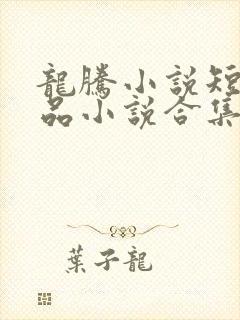 龍騰小説短
品小説合集
葉子龍